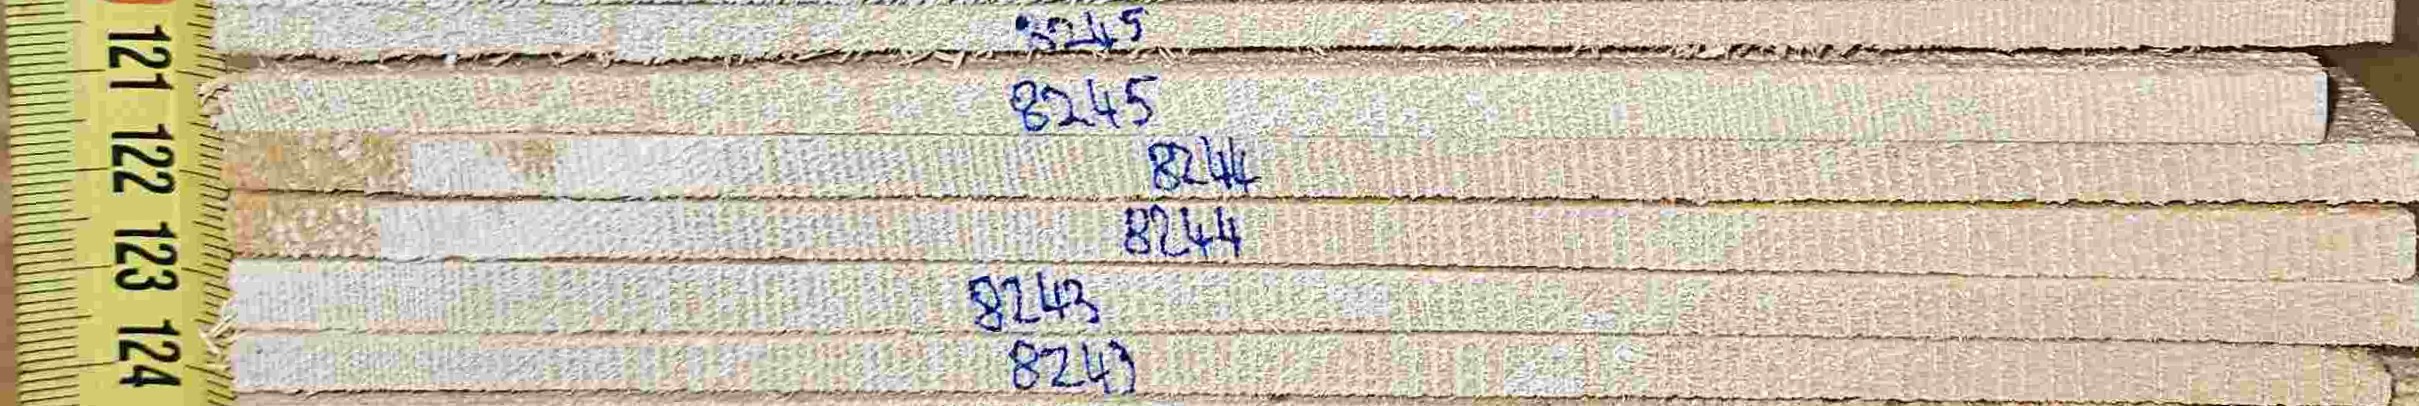 8245
8245
8244
8244
8243
8243
121 122 123 124